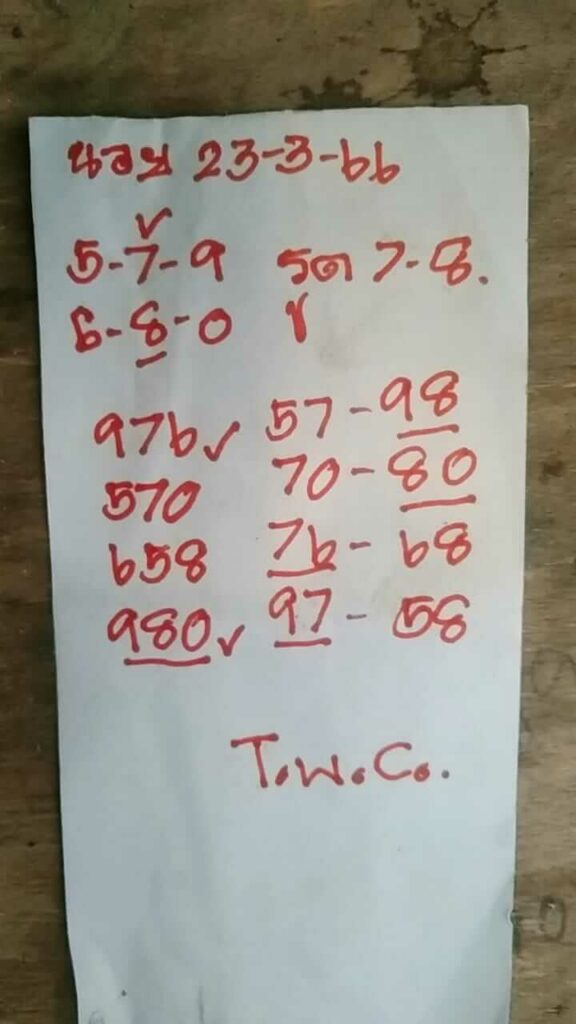 นอย 23-3-66
5-7-9 รูด 7-8.
6-8-0
976 ✓ 57-98
570 70-80
658 76-68
980 ✓ 97-58
T.W.C..